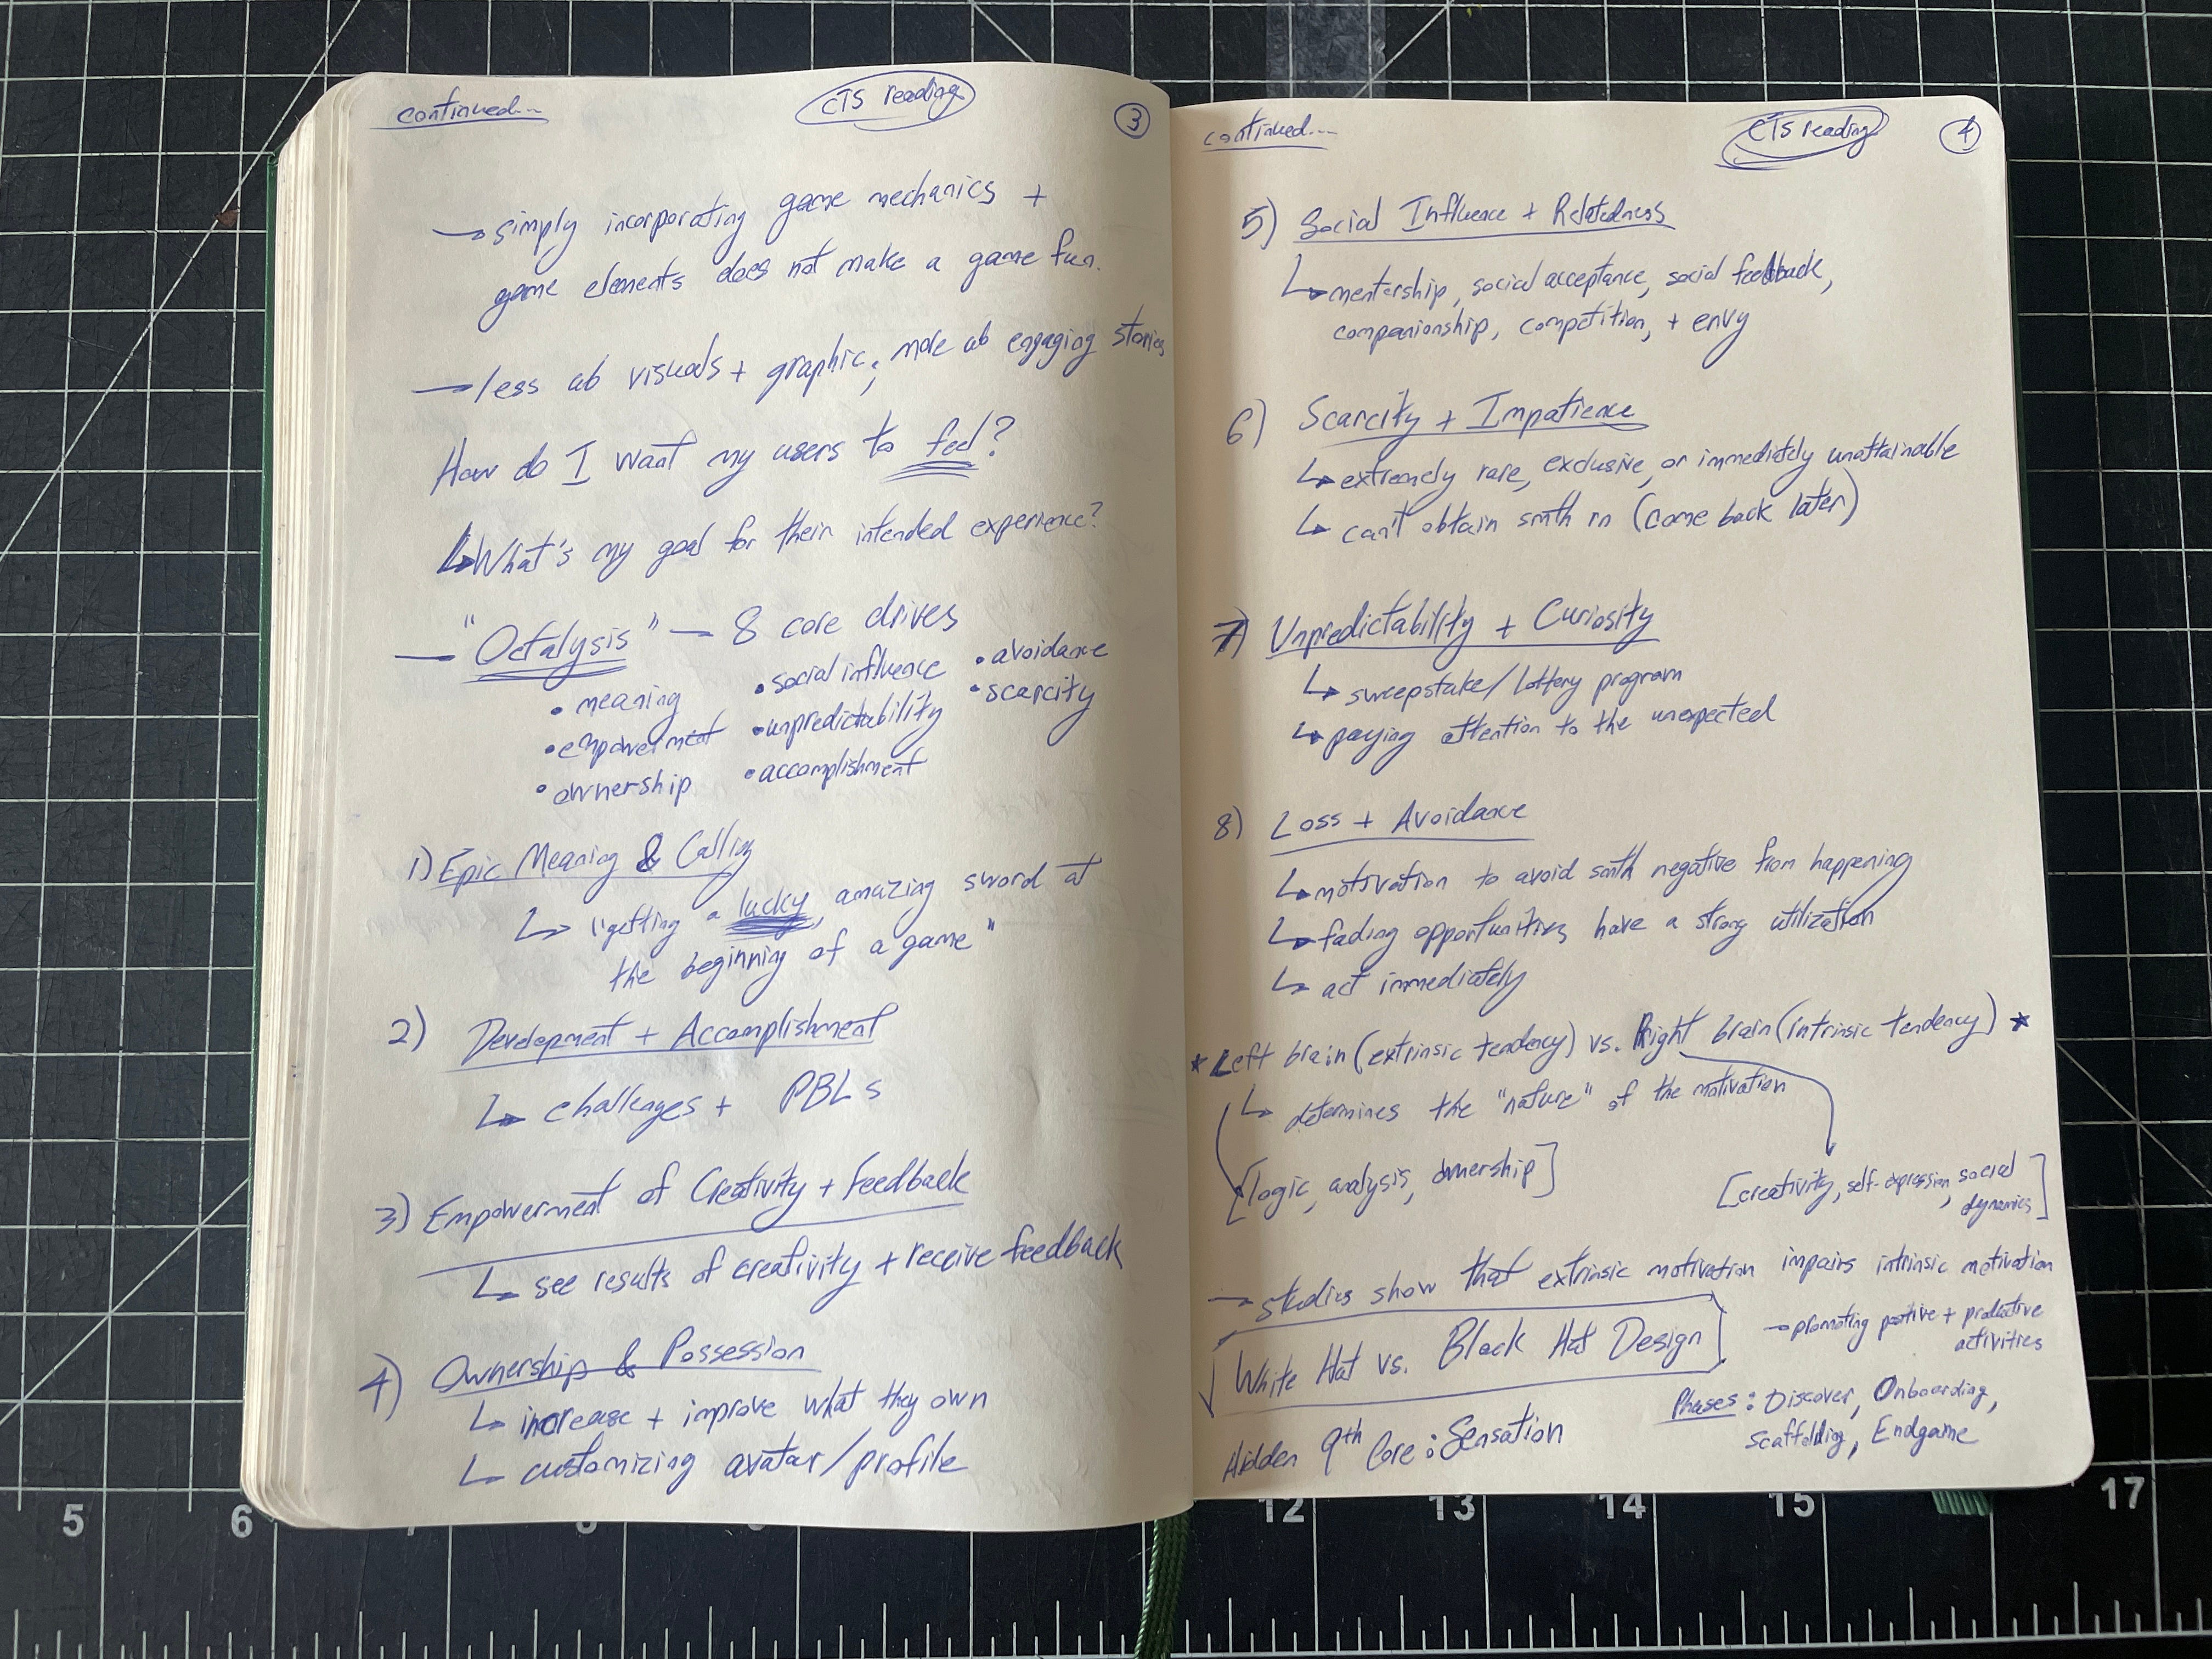 continued...
CTS reading
3
→ simply incorporating game mechanics +
game elements does not make a game fun.
→ less ab visuals + graphic; more ab engaging stories
How do I want my users to feel?
↳ What's my goal for their intended experience?
— "Octalysis" — 8 core drives
• meaning • social influence • avoidance
• empowerment • unpredictability • scarcity
• ownership • accomplishment
1) Epic Meaning & Calling
↳ "getting a lucky, amazing sword at
the beginning of a game"
2) Development + Accomplishment
↳ challenges + PBLs
3) Empowerment of Creativity + Feedback
↳ see results of creativity + receive feedback
4) Ownership & Possession
↳ increase + improve what they own
↳ customizing avatar/profile
continued...
CTS reading
4
5) Social Influence + Relatedness
↳ mentorship, social acceptance, social feedback,
companionship, competition, + envy
6) Scarcity + Impatience
↳ extremely rare, exclusive, or immediately unattainable
↳ can't obtain smth rn (come back later)
7) Unpredictability + Curiosity
↳ sweepstake/lottery program
↳ paying attention to the unexpected
8) Loss + Avoidance
↳ motivation to avoid smth negative from happening
↳ fading opportunities have a strong utilization
↳ act immediately
* Left brain (extrinsic tendency) vs. Right brain (intrinsic tendency) *
↳ determines the "nature" of the motivation
[logic, analysis, ownership]
[creativity, self-expression, social
dynamics]
→ studies show that extrinsic motivation impairs intrinsic motivation
White Hat vs. Black Hat Design
→ promoting positive + productive
activities
Hidden 9th Core: Sensation
Phases: Discover, Onboarding,
Scaffolding, Endgame
5 6 7 8 9 12 13 14 15 17